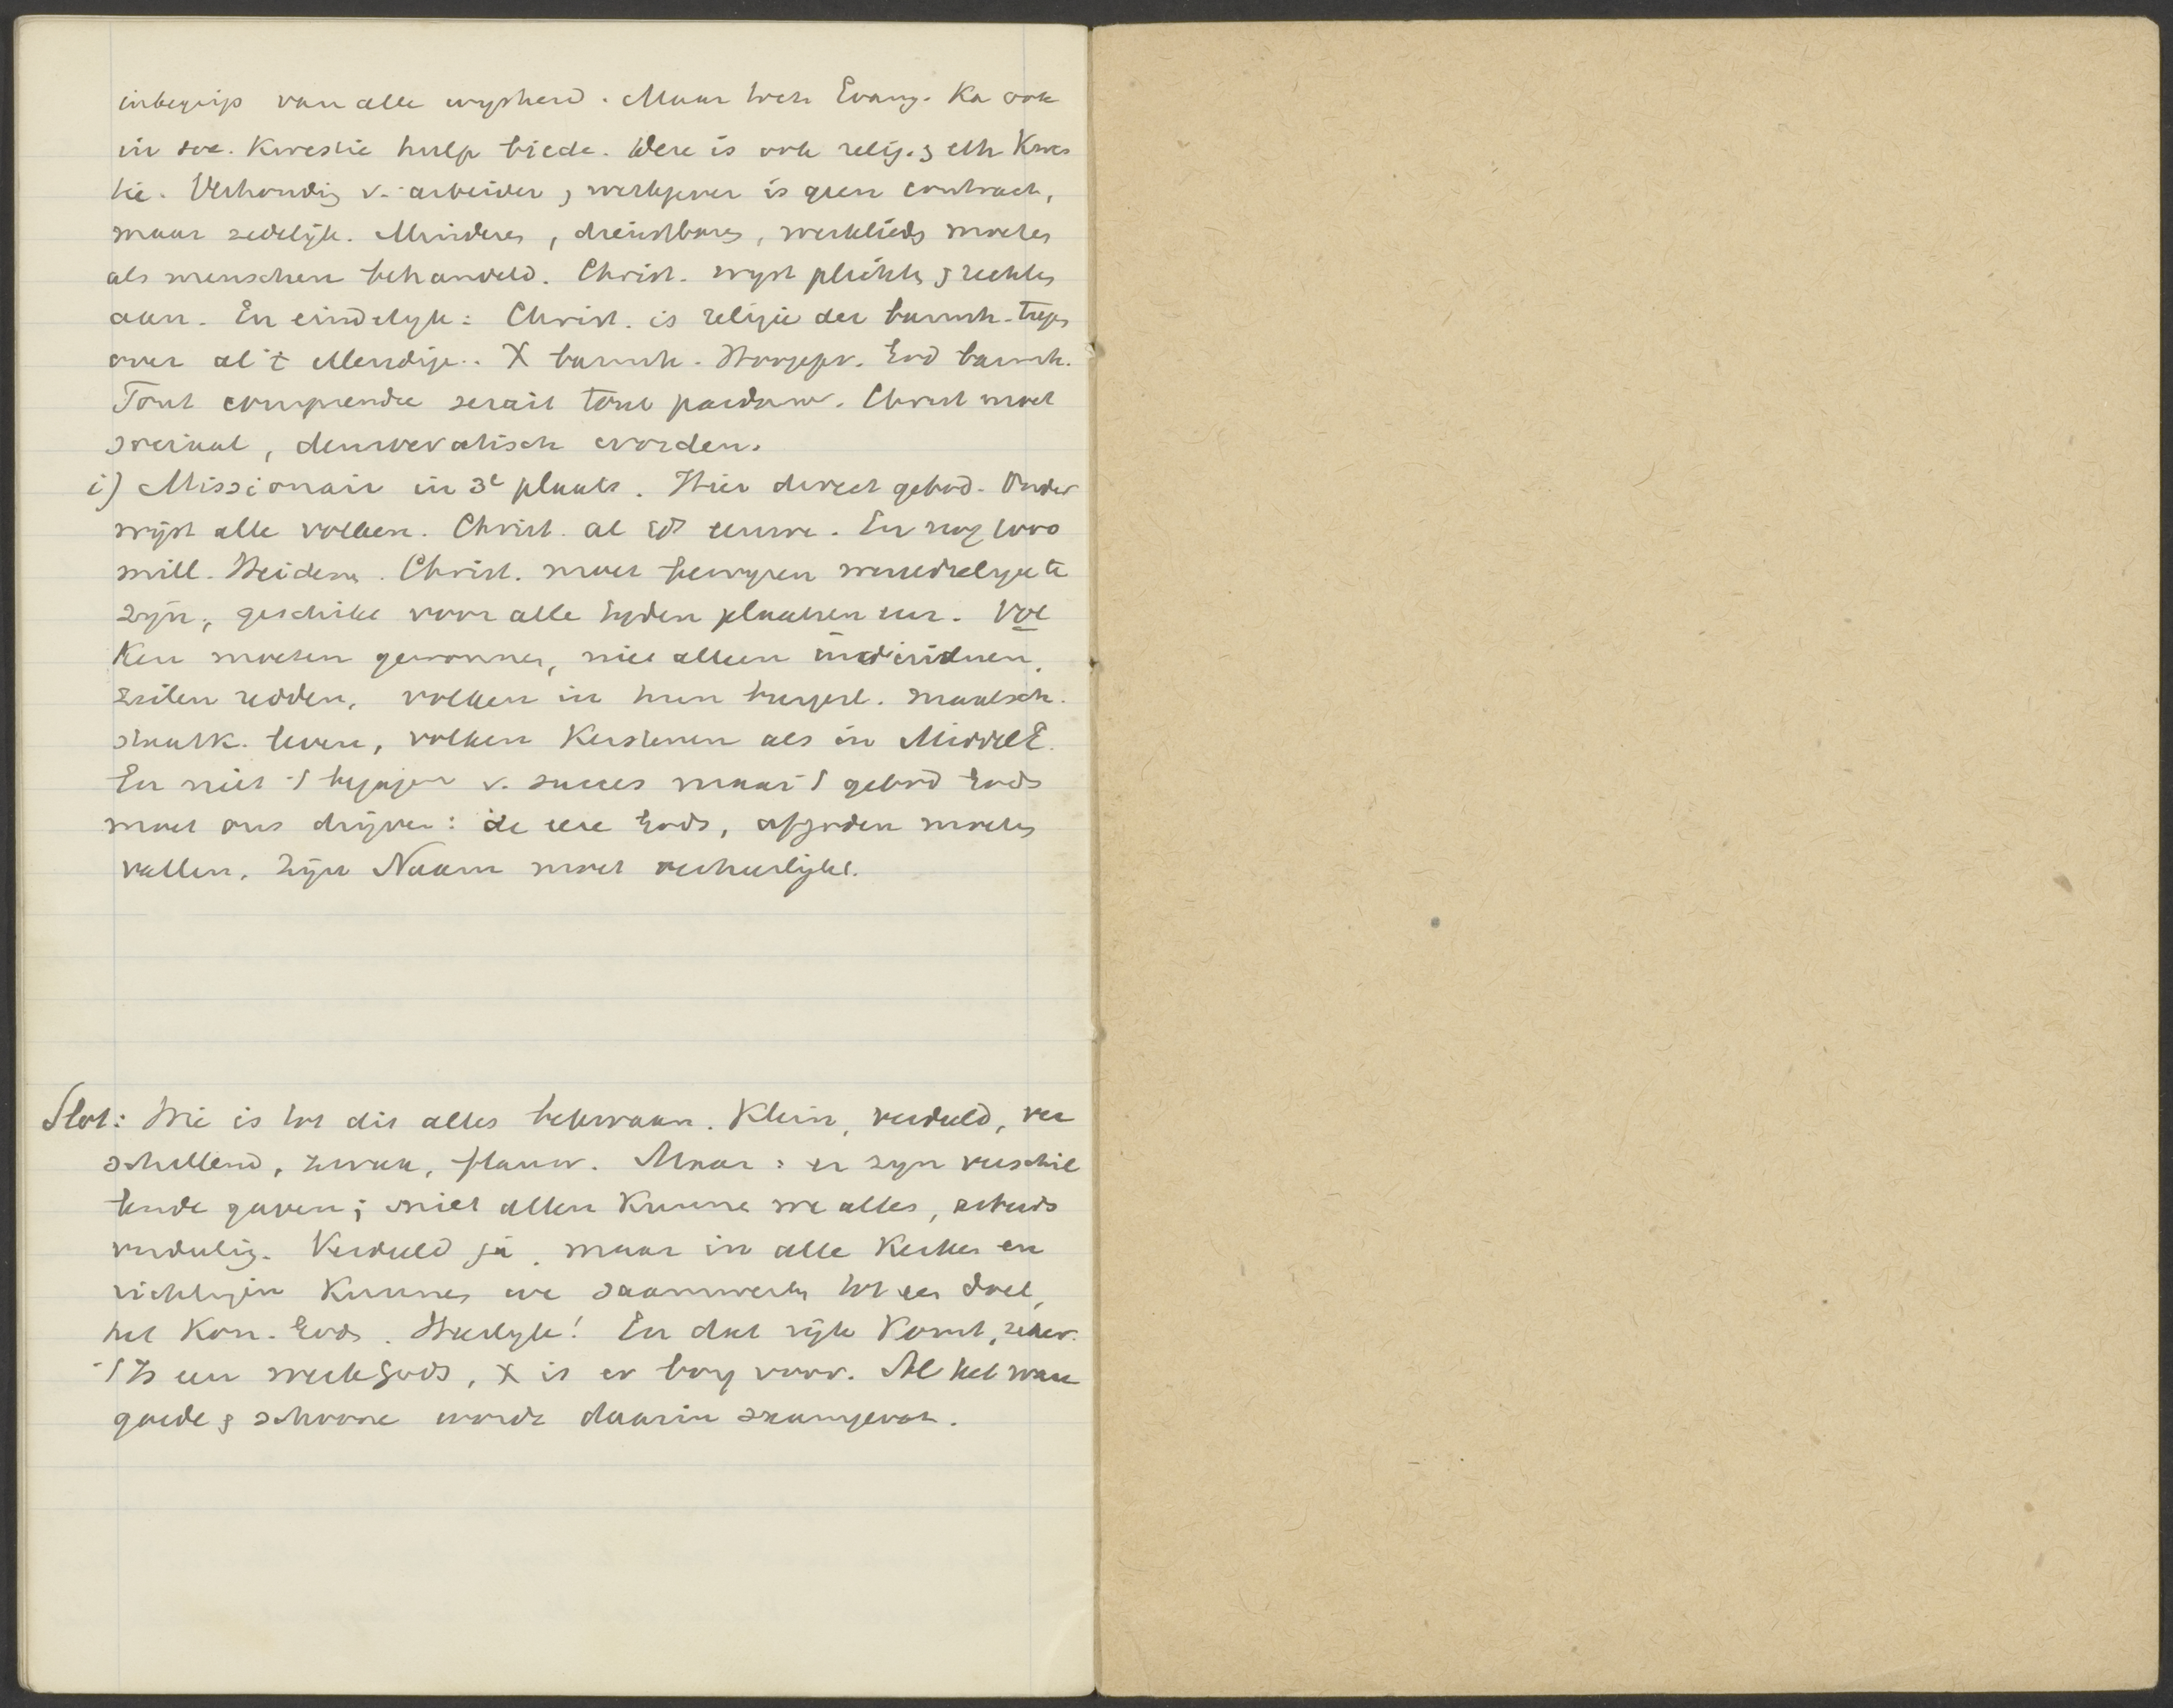 inbegrip van alle wysheid. Maar toch Evang. Ka ook
in soc. Kwestie hulp biede. Deze is ook relig. & eth Kwes
tie. Verhoudig v. arbeider & werkgever is geen contract,
maar zedelijk. Minderes, dienstbares, werklieds moetes
als menschen behandeld. Christ. wyst plichts & rechtes
aan. En eindelyk: Christ. is religie der barmh.
over al 't ellendige. X barmh. Hoogepr. God barmh.
Tout comprendre serait tout pardonner. Christ moet
sociaal, democratisch worden.
i) Missionair in 3e plaats. Hier direct gebod. Onder
wijst alle volken. Christ. al eeuwe. En nog 1000
mill. Heidens. Christ. moet bewyzen wereldrelgie te
zijn, geschikt voor alle tyden plaatsen enz. Vol
Ken moeten gewonnen, niet alleen individuen,
zielen redden, volken in hun burgerl. maatsch.
staatk. leven, volken Kerstenen als in MiddelE.
En niet 't bejagen v. succes maar 't gebod Gods
moet ons drijven: de eere Gods, afgoden moetes
vallen, Zijn Naam moet verheerlijkt.
Slot: Wie is tot dit alles bekwaam. Klein, verdeeld, ver
schillend, zwak, flauw. Maar: er zyn verschil
lende gaven; niet allen Kunne we alles, arbeids
verdelig. Verdeeld ja, maar in alle Kerkes en
richtingen Kunnes we saamwerks tot een doel,
het Kon. Gods. Heerlyk! En dat rijk Komt, zeker.
't Is een werk Gods, X is er borg voor. Al het ware
goede & schoone wordt daarin saamgevat.